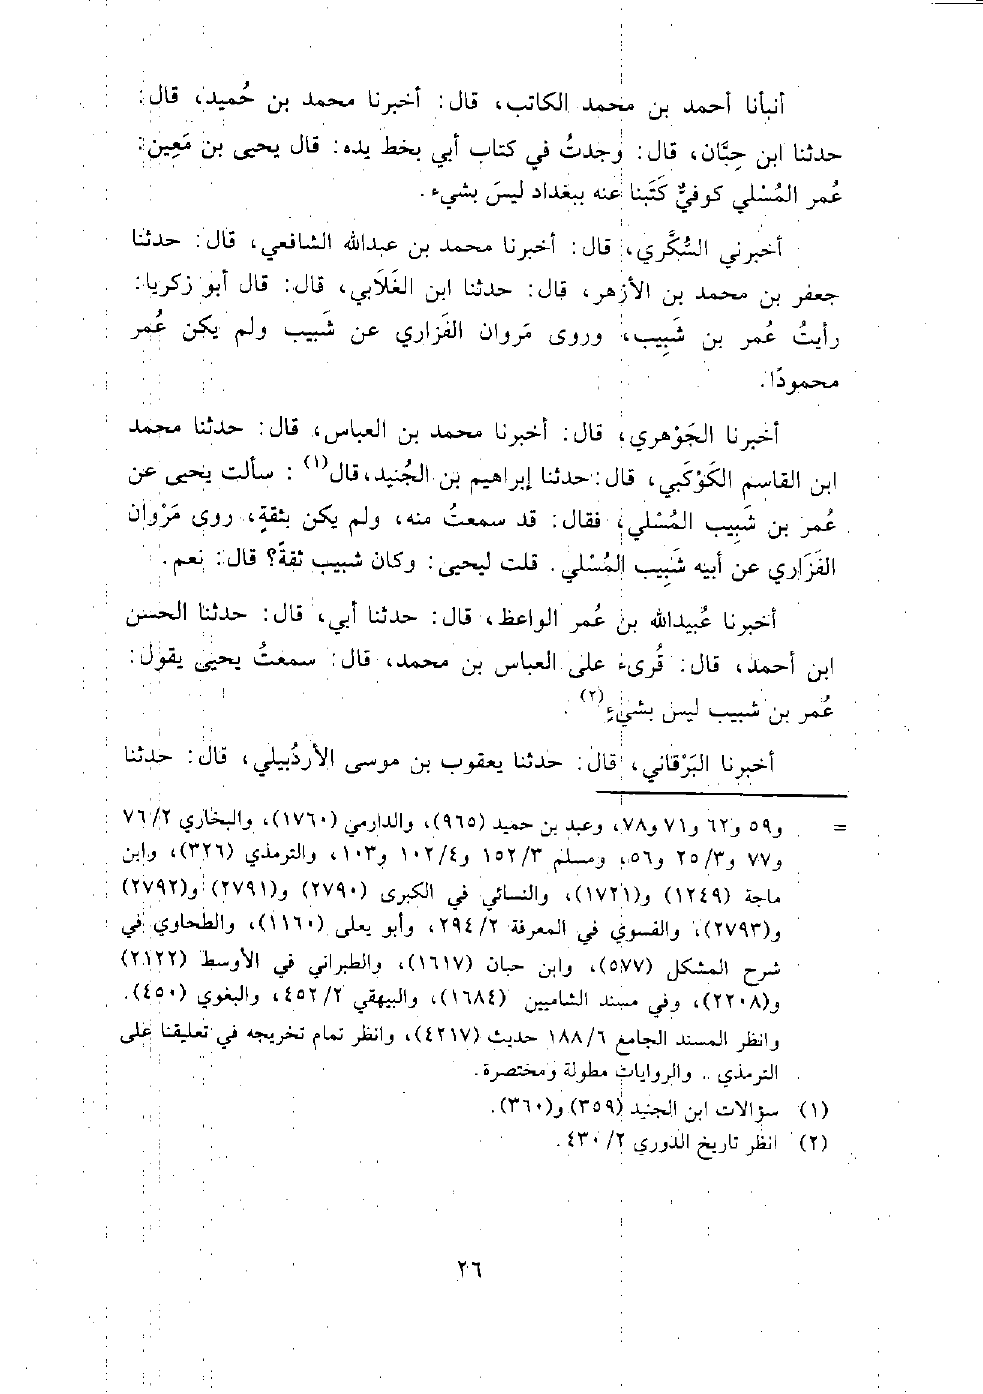 أنبأنا أحمد بن محمد الكاتب، قال: أخبرنا محمد بن حُميد، قال:
حدثنا ابن حِبَّان، قال: وجدتُ في كتاب أبي بخط يده: قال يحيى بن مَعِين:
عُمر المُسْلي كوفيٌّ كَتَبنا عنه ببغداد ليسَ بشيء.
أخبرني السُّكَّري، قال: أخبرنا محمد بن عبدالله الشافعي، قال: حدثنا
جعفر بن محمد بن الأزهر، قال: حدثنا ابن الغَلَابي، قال: قال أبو زكريا:
رأيتُ عُمر بن شَبِيب، وروى مَروان الفَزاري عن شَبيب ولم يكن عُمر
محمودًا.
أخبرنا الجَوْهري، قال: أخبرنا محمد بن العباس، قال: حدثنا محمد
ابن القاسم الكَوْكَبي، قال: حدثنا إبراهيم بن الجُنيد، قال(١): سألت يحيى عن
عُمر بن شَبِيب المُسْلي، فقال: قد سمعتُ منه، ولم يكن بثقةٍ، روى مَرْوان
الفَزَاري عن أبيه شَبِيب المُسْلي. قلت ليحيى: وكان شبيب ثقةً؟ قال: نعم.
أخبرنا عُبيدالله بن عُمر الواعظ، قال: حدثنا أبي، قال: حدثنا الحسن
ابن أحمد، قال: قُرىء على العباس بن محمد، قال: سمعتُ يحيى يقول:
عُمر بن شبيب ليس بشيءٍ(٢).
أخبرنا البَرْقاني، قال: حدثنا يعقوب بن موسى الأردُبيلي، قال: حدثنا
= و٥٩ و٦٢ و٧١ و٧٨، وعبد بن حميد (٩٦٥)، والدارمي (١٧٦٠)، والبخاري ٢/ ٧٦
و٧٧ و٣/ ٢٥ و٥٦، ومسلم ٣/ ١٥٢ و٤/ ١٠٢ و١٠٣، والترمذي (٣٢٦)، وابن
ماجة (١٢٤٩) و(١٧٢١)، والنسائي في الكبرى (٢٧٩٠) و(٢٧٩١) و(٢٧٩٢)
و(٢٧٩٣)، والفسوي في المعرفة ٢/ ٢٩٤، وأبو يعلى (١١٦٠)، والطحاوي في
شرح المشكل (٥٧٧)، وابن حبان (١٦١٧)، والطبراني في الأوسط (٢١٢٢)
و(٢٢٠٨)، وفي مسند الشاميين (١٦٨٤)، والبيهقي ٢/ ٤٥٢، والبغوي (٤٥٠).
وانظر المسند الجامع ٦/ ١٨٨ حديث (٤٢١٧)، وانظر تمام تخريجه في تعليقنا على
الترمذي .. والروايات مطولة ومختصرة.
(١) سؤالات ابن الجنيد (٣٥٩) و(٣٦٠).
(٢) انظر تاريخ الدوري ٢/ ٤٣٠.
٢٦